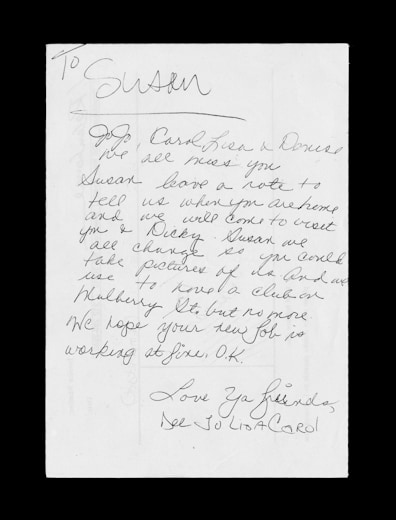 To
Susan
JoJo, Carol Lisa & Denise
we all miss you
Susan leave a note to
tell us when you are home
and we will come to visit
you & Dicky. Susan we
all change so you could
take pictures of us and we
use to have a club on
Mulberry St. but no more
We hope your new job is
working at fine. O.K.
Love Ya friends,
Dee JO LISA Carol